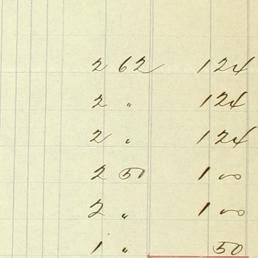 2 62 124
2 " 124
2 " 124
2 50 1 00
2 " 1 00
1 " 50